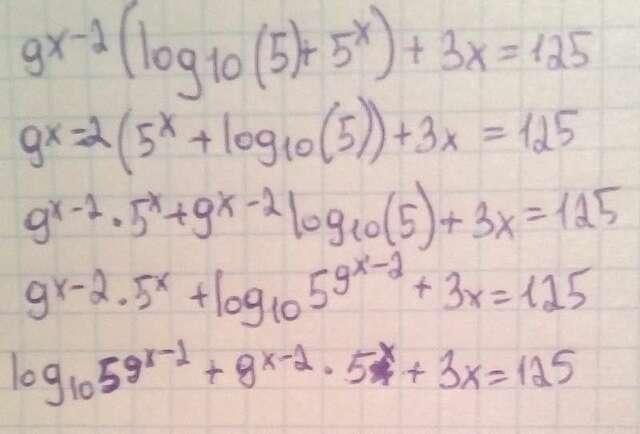 9^{x-2}(log_{10}(5)+5^x)+3x=125
9^{x-2}(5^x+log_{10}(5))+3x=125
9^{x-2}·5^x+9^{x-2}log_{10}(5)+3x=125
9^{x-2}·5^x+log_{10}5^{9^{x-2}}+3x=125
log_{10}5^{9^{x-2}}+9^{x-2}·5^x+3x=125